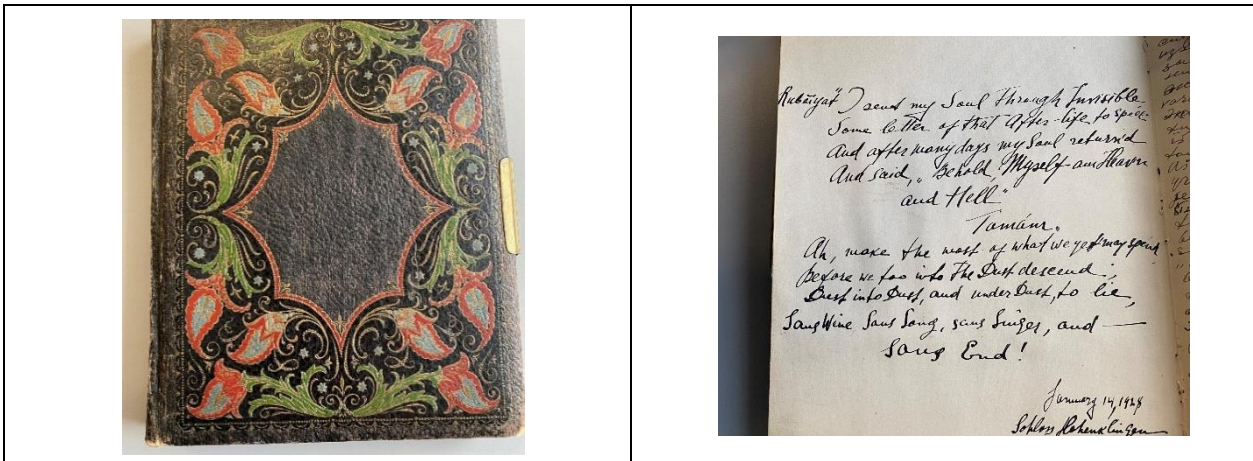 Rubáiyát I send my Soul through Invisible
Some letter of that After-life to spell
And after many days my Soul return'd
And said, „ Behold, Myself am Heaven
and Hell"
Tamám.
Ah, make the most of what we yet may spend
Before we too into the Dust descend,
Dust into Dust, and under Dust, to lie,
Sans Wine Sans Song, sans Singer, and —
Sans End!
January 14, 1928
Schloss Hohenklingen